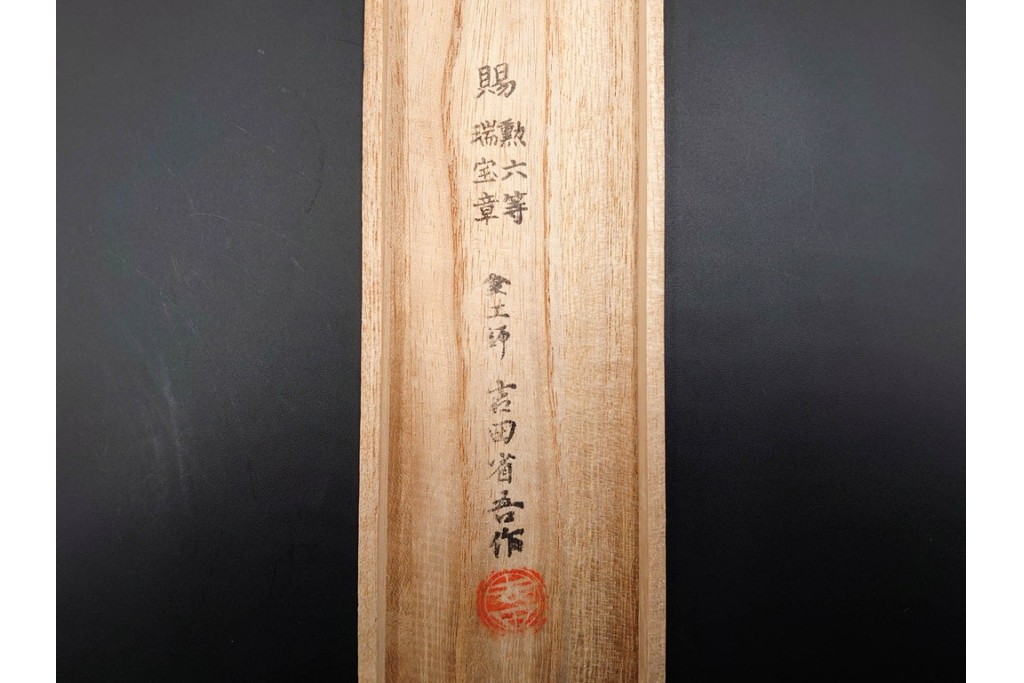 賜
勲六等
瑞宝章
金工師
吉田省吾作